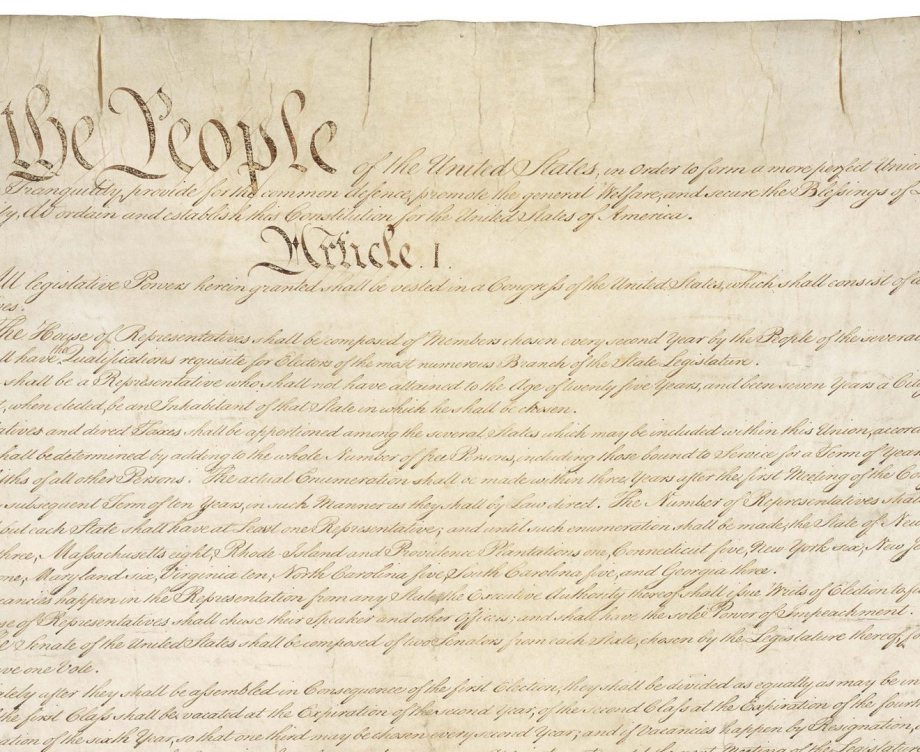 the People
of the United States, in Order to form a more perfect Unio
Tranquility, provide for the common defence, promote the general Welfare, and secure the Blessings of
ity, do ordain and establish this Constitution for the United States of America.
Article. I.
All legislative Powers herein granted shall be vested in a Congress of the United States, which shall consist of a
ives.
The House of Representatives shall be composed of Members chosen every second Year by the People of the several
ll have the Qualifications requisite for Electors of the most numerous Branch of the State Legislature.
shall be a Representative who shall not have attained to the Age of twenty five Years, and been seven Years a Citi
t, when elected, be an Inhabitant of that State in which he shall be chosen.
tatives and direct Taxes shall be apportioned among the several States which may be included within this Union, accord
hall be determined by adding to the whole Number of free Persons, including those bound to Service for a Term of Years
ifths of all other Persons. The actual Enumeration shall be made within three Years after the first Meeting of the Co
subsequent Term of ten Years, in such Manner as they shall by Law direct. The Number of Representatives shal
but each State shall have at Least one Representative; and until such enumeration shall be made, the State of New
three, Massachusetts eight, Rhode Island and Providence Plantations one, Connecticut five, New York six, New J
one, Maryland six, Virginia ten, North Carolina five, South Carolina five, and Georgia three.
acancies happen in the Representation from any State, the Executive Authority thereof shall issue Writs of Election to fi
se of Representatives shall chuse their Speaker and other Officers; and shall have the sole Power of Impeachment.
e Senate of the United States shall be composed of two Senators from each State, chosen by the Legislature thereof, f
ave one Vote.
tely after they shall be assembled in Consequence of the first Election, they shall be divided as equally as may be in
the first Class shall be vacated at the Expiration of the second Year, of the second Class at the Expiration of the fourth
ation of the sixth Year, so that one third may be chosen every second Year; and if Vacancies happen by Resignation,